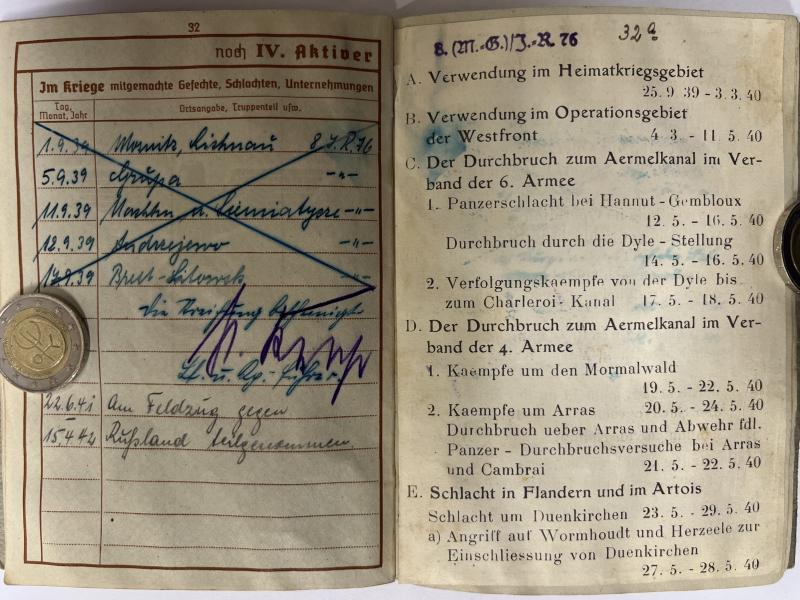 32
noch IV. Aktiver
Im Kriege mitgemachte Gefechte, Schlachten, Unternehmungen
Tag, Monat, Jahr
Ortsangabe, Truppenteil usw.
1.9.39 8 J.R. 76
5.9.39 Grupa -"-
11.9.39 -"-
12.9.39 Andrzejewo -"-
Brest-Litowsk -"-
Die Streichung
Lt. u. Kp.-Führer
22.6.41 Am Feldzug gegen
–
15.4.42 Rußland teilgenommen
8. (M.-G.)/J.-R. 76 32a
A. Verwendung im Heimatkriegsgebiet
25. 9 39 - 3. 3. 40
B. Verwendung im Operationsgebiet
der Westfront 4 3. - 11. 5. 40
C. Der Durchbruch zum Aermelkanal im Ver-
band der 6. Armee
1. Panzerschlacht bei Hannut - Gembloux
12. 5. - 16. 5. 40
Durchbruch durch die Dyle - Stellung
14. 5. - 16. 5. 40
2. Verfolgungskaempfe von der Dyle bis
zum Charleroi - Kanal 17. 5. - 18. 5. 40
D. Der Durchbruch zum Aermelkanal im Ver-
band der 4. Armee
1. Kaempfe um den Mormalwald
19. 5. - 22. 5. 40
2. Kaempfe um Arras 20. 5. - 24. 5. 40
Durchbruch ueber Arras und Abwehr fdl.
Panzer - Durchbruchsversuche bei Arras
und Cambrai 21. 5. - 22. 5. 40
E. Schlacht in Flandern und im Artois
Schlacht um Duenkirchen 23. 5. - 29. 5. 40
a) Angriff auf Wormhoudt und Herzeele zur
Einschliessung von Duenkirchen
27. 5. - 28. 5. 40